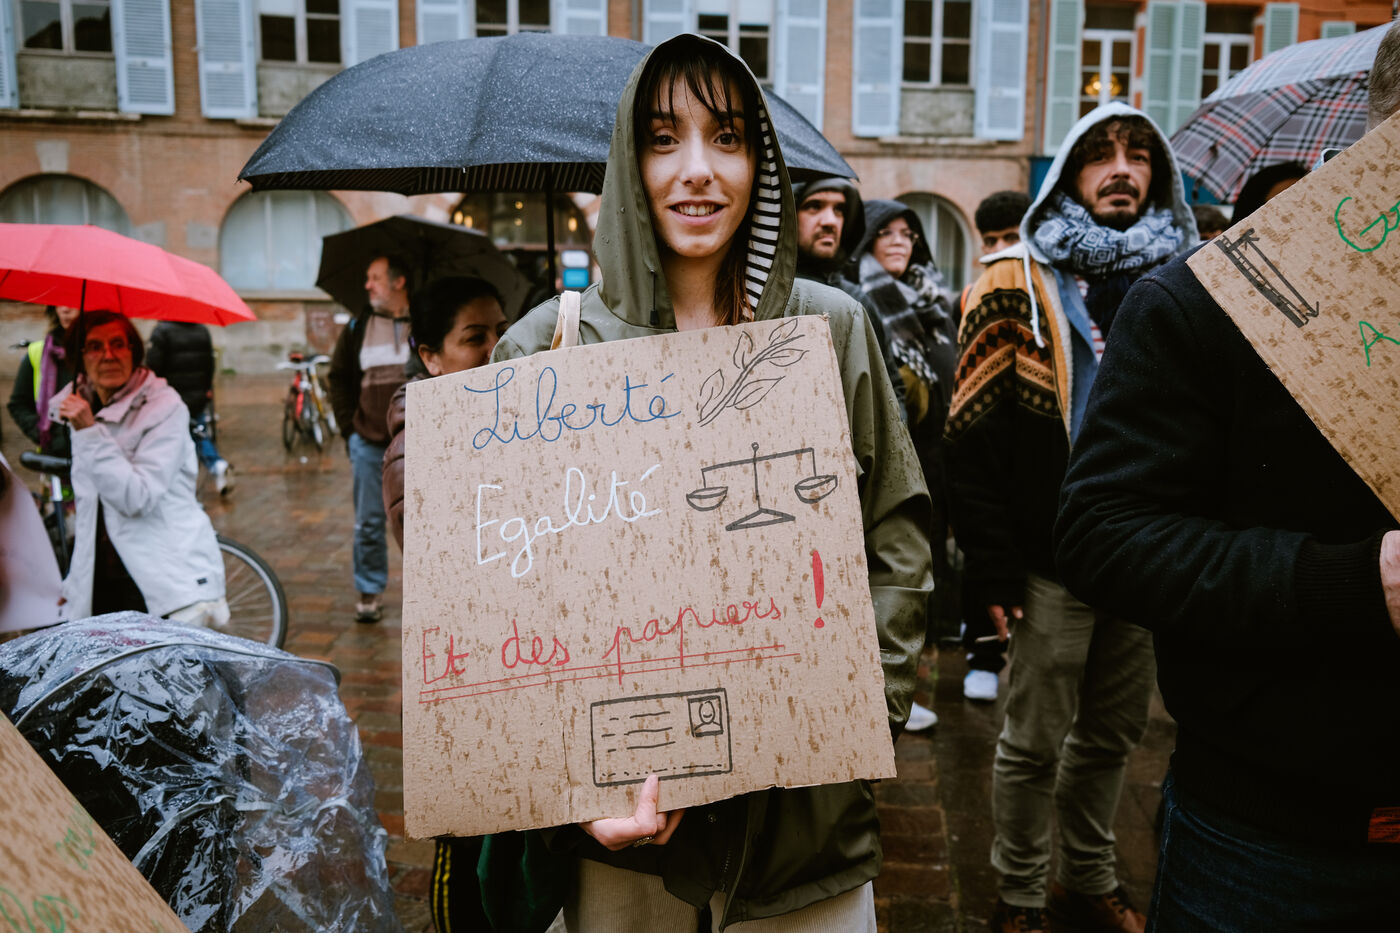 Liberté
Egalité
Et des papiers !